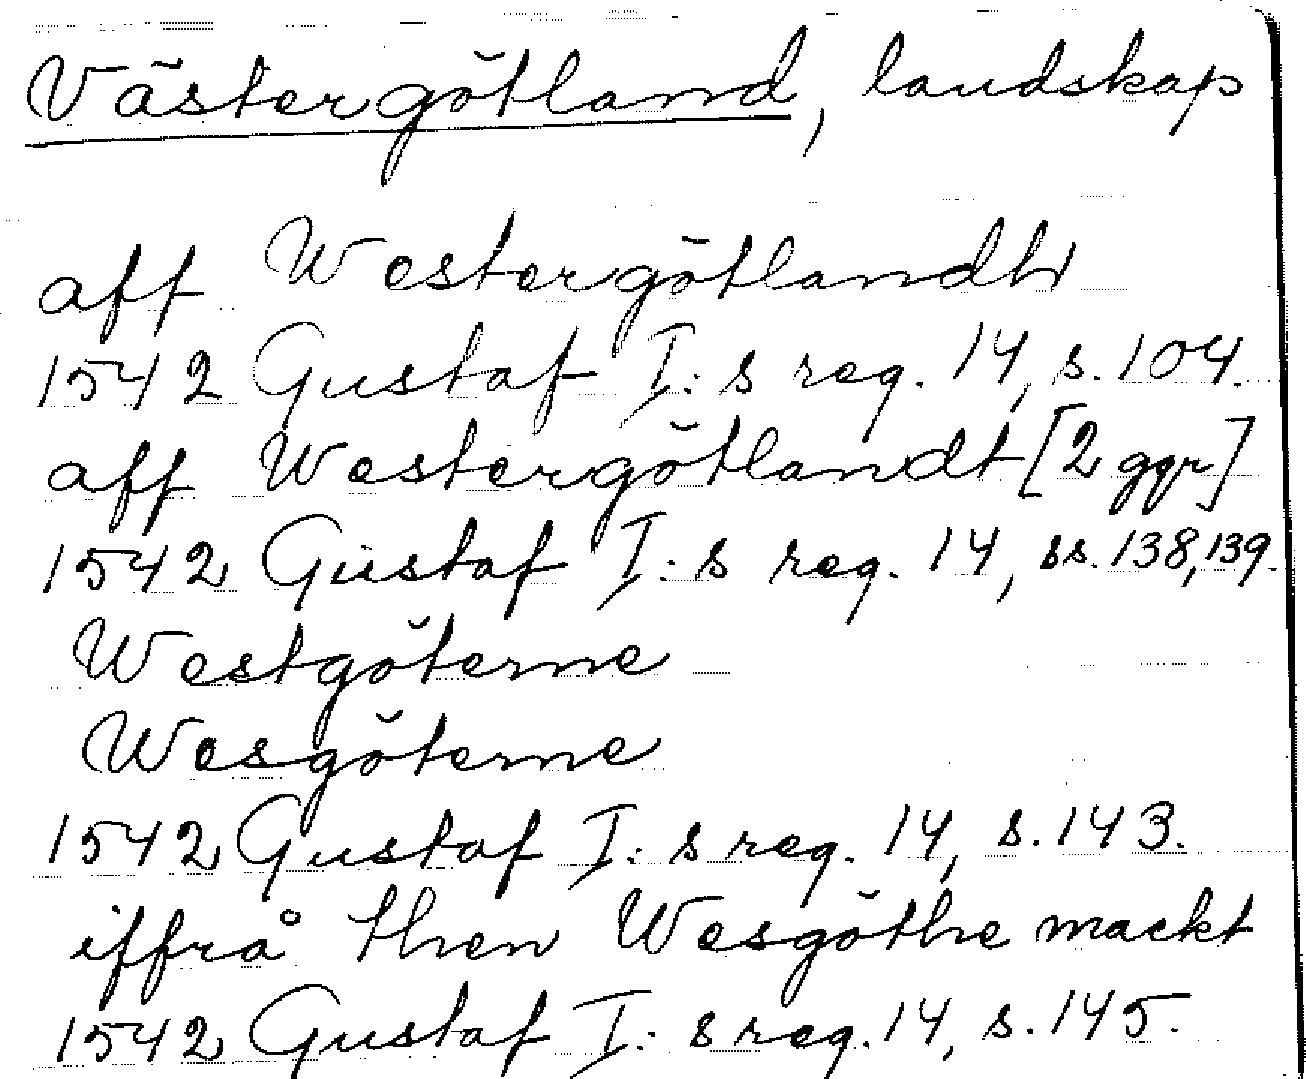 Västergötland, landskap
aff Westergötlandh
1542 Gustaf I:s reg. 14, s. 104.
aff Westergötlandt [2 ggr]
1542 Gustaf I:s reg. 14, ss. 138, 139.
Westgöterne
Wesgöterne
1542 Gustaf I:s reg. 14, s. 143.
iffrå then Wesgöthe mackt
1542 Gustaf I:s reg. 14, s. 145.